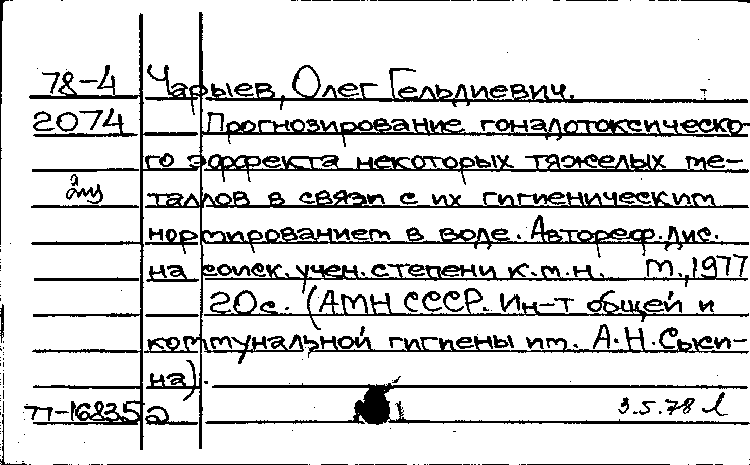 78-4 Чарыев, Олег Гельдиевич.
2074 Прогнозирование гонадотоксическо-
го эффекта некоторых тяжелых ме-
таллов в связи с их гигиеническим
нормированием в воде. Автореф. дис.
на соиск. учен. степени к.м.н. М., 1977
20с. (АМН СССР. Ин-т общей и
коммунальной гигиены им. А.Н. Сыси-
на).
П-16835 3.5.78